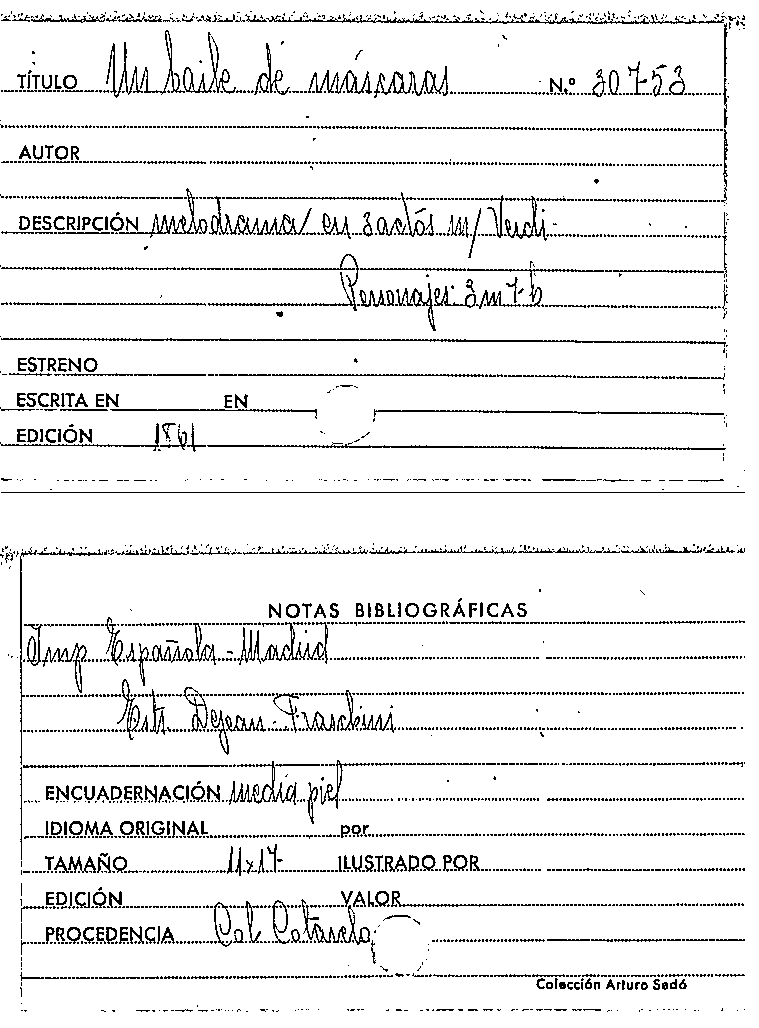 TÍTULO Un baile de máscaras N.º 30753
AUTOR
DESCRIPCIÓN melodrama en 3 actos m/ Verdi
Personajes: 3m 7 h
ESTRENO
ESCRITA EN EN
EDICIÓN 1861
NOTAS BIBLIOGRÁFICAS
Imp Española - Madrid
Dejean - Fraschini
ENCUADERNACIÓN media piel
IDIOMA ORIGINAL por
TAMAÑO 11x17 ILUSTRADO POR
EDICIÓN VALOR
PROCEDENCIA Col Cotarelo
Colección Arturo Sedó